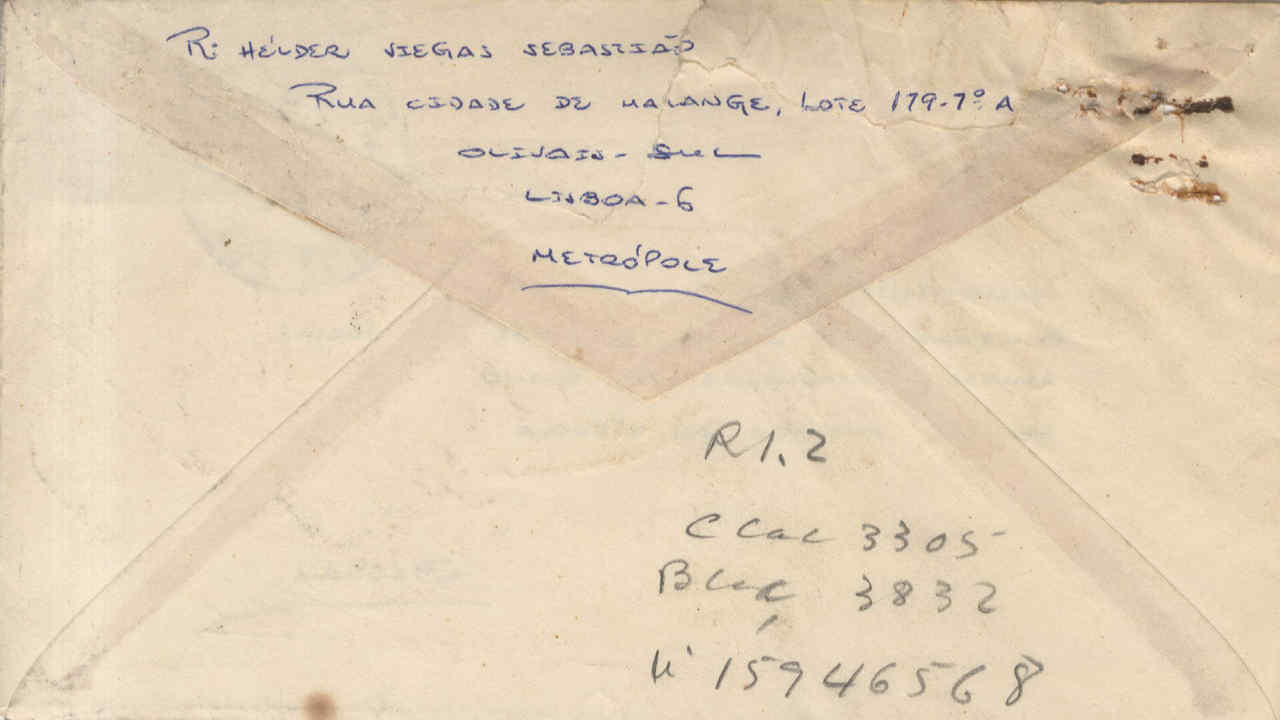 R: HÉLDER VIEGAS SEBASTIÃO
RUA CIDADE DE MALANGE, LOTE 179-7º A
OLIVAIS - SUL
LISBOA - 6
METRÓPOLE
RI. 2
CCac 3305
BCac 3832
Nº 15946568